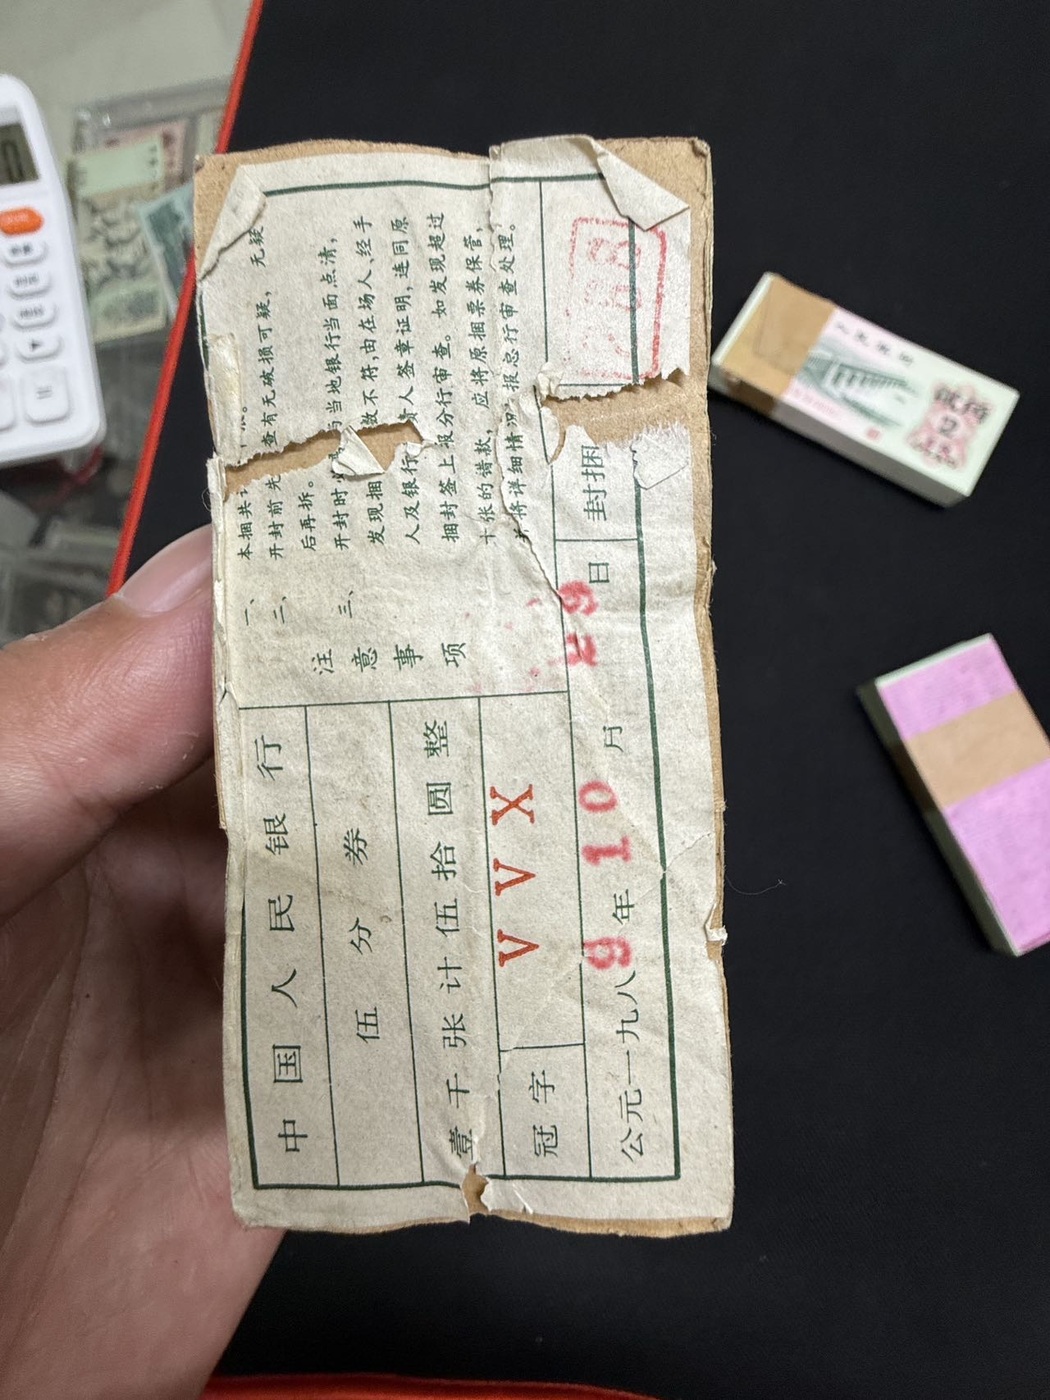 中国人民银行
伍分券
壹千张计伍拾圆整
冠字 VVX
公元一九八9年10月29日封捆
注意事项
一、本捆共
二、开封前先 查有无破损可疑，无疑
后再拆。
三、开封时 当地银行当面点清，
发现捆 数不符，由在场人、经手
人及银行 责人签章证明，连同原
捆封签上报分行审查。如发现超过
十张的错款，应将原捆票券保管，
并将详细情况报总行审查处理。
贰角
2